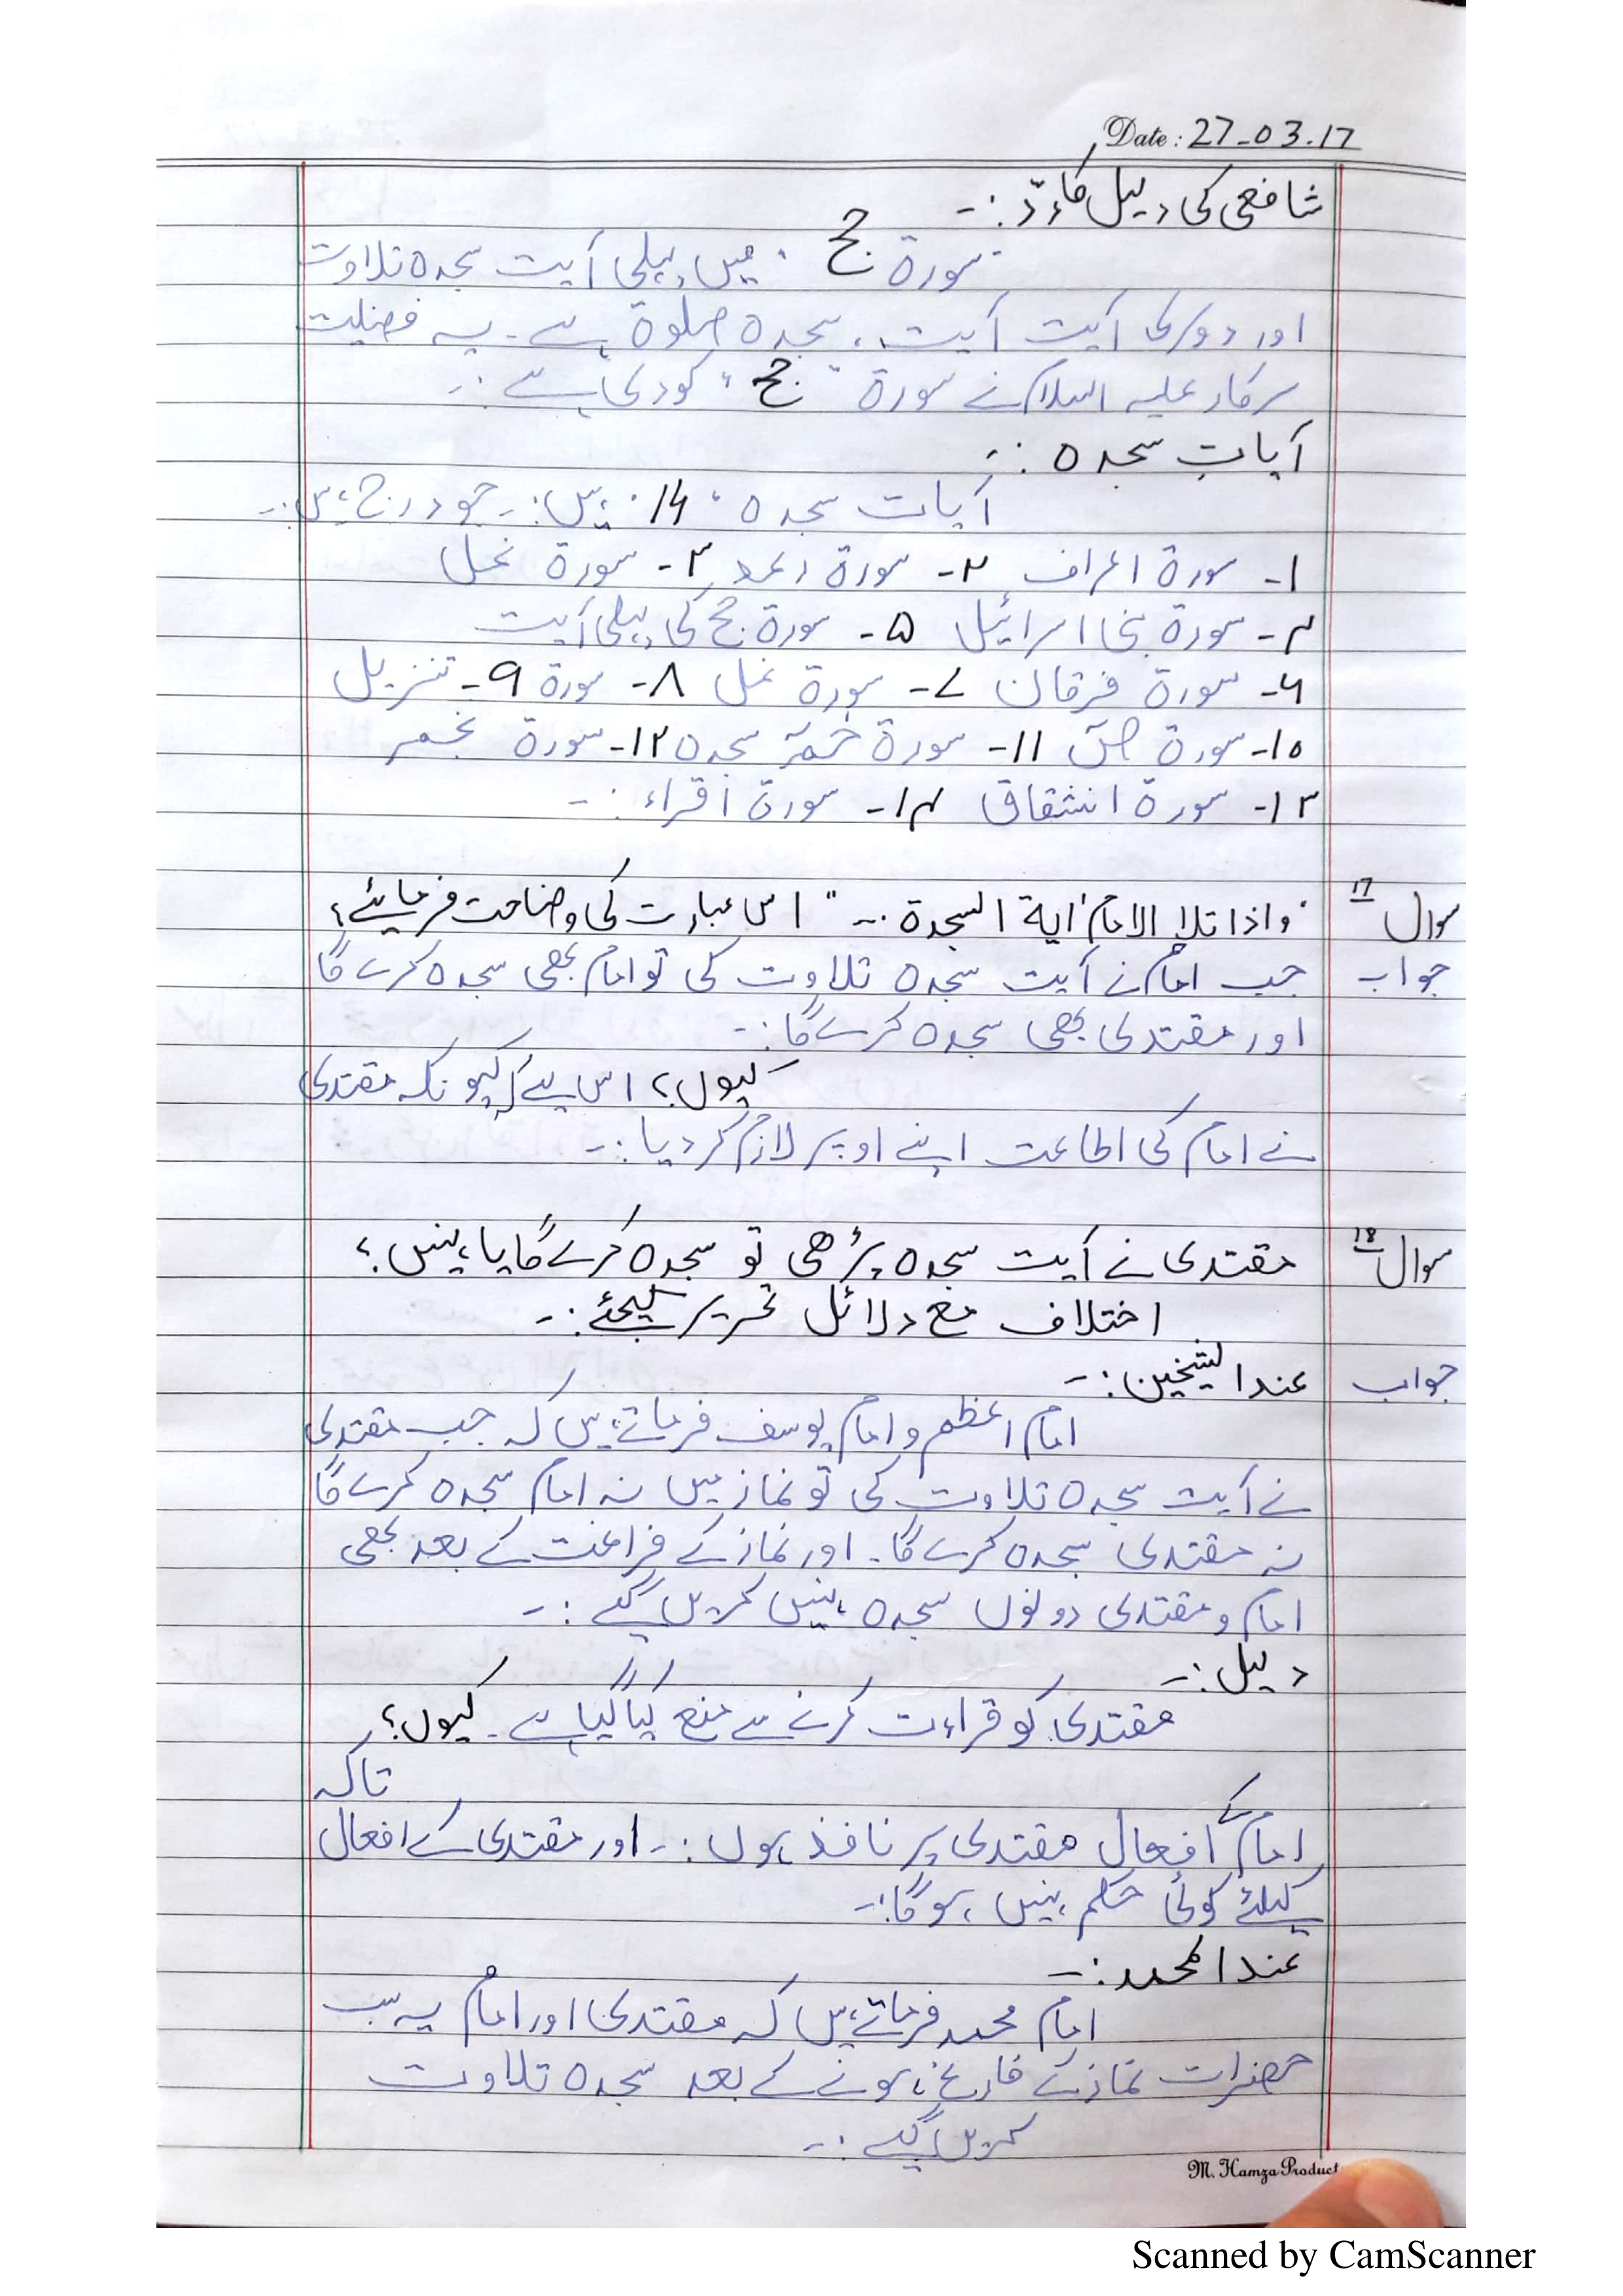 Date: 27-03-17
شافعی کی دلیل کا رد :-
"سورۃ حج" میں پہلی آیت سجدہ تلاوت
اور دوسری آیت آیت، سجدہ صلوۃ ہے۔ یہ فضلیت
سرکار علیہ السلام نے سورۃ "حج" کو دی ہے :-
آیاتِ سجدہ :-
آیات سجدہ "14" ہیں :- جو درج ہیں :-
۱- سورۃ اعراف ۲- سورۃ رعد ۳- سورۃ نحل
۴- سورۃ بنی اسرائیل ۵- سورۃ حج کی پہلی آیت
۶- سورۃ فرقان ۷- سورۃ نمل ۸- سورۃ ۹- تنزیل
۱۰- سورۃ ص ۱۱- سورۃ حٰمۤ سجدہ ۱۲- سورۃ نجم
۱۳- سورۃ انشقاق ۱۴- سورۃ اقراء :-
سوال 17 "واذا تلا الامام اٰیۃ السجدۃ ..." اس عبارت کی وضاحت فرمائیے؟
جواب جب امام نے آیت سجدہ تلاوت کی تو امام بھی سجدہ کرے گا
اور مقتدی بھی سجدہ کرے گا :-
کیوں؟ اس لئے کیونکہ مقتدی
نے امام کی اطاعت اپنے اوپر لازم کر دیا :-
سوال 18 مقتدی نے آیت سجدہ پڑھی تو سجدہ کرے گا یا نہیں؟
اختلاف مع دلائل تحریر کیجئے :-
جواب عند الشیخین :-
امام اعظم و امام یوسف فرماتے ہیں کہ جب مقتدی
نے آیت سجدہ تلاوت کی تو نماز میں نہ امام سجدہ کرے گا
نہ مقتدی سجدہ کرے گا۔ اور نماز کے فراغت کے بعد بھی
امام و مقتدی دونوں سجدہ نہیں کریں گے :-
دلیل :-
مقتدی کو قراءت کرنے سے منع کیا گیا ہے۔ کیوں؟
تاکہ
امام کے افعال مقتدی پر نافذ ہوں :- اور مقتدی کے افعال
کیلئے کوئی حکم نہیں ہوگا :-
عند المحمد :-
امام محمد فرماتے ہیں کہ مقتدی اور امام یہ سب
حضرات نماز کے فارغ ہونے کے بعد سجدہ تلاوت
کریں گے :-
M. Hamza Product
Scanned by CamScanner